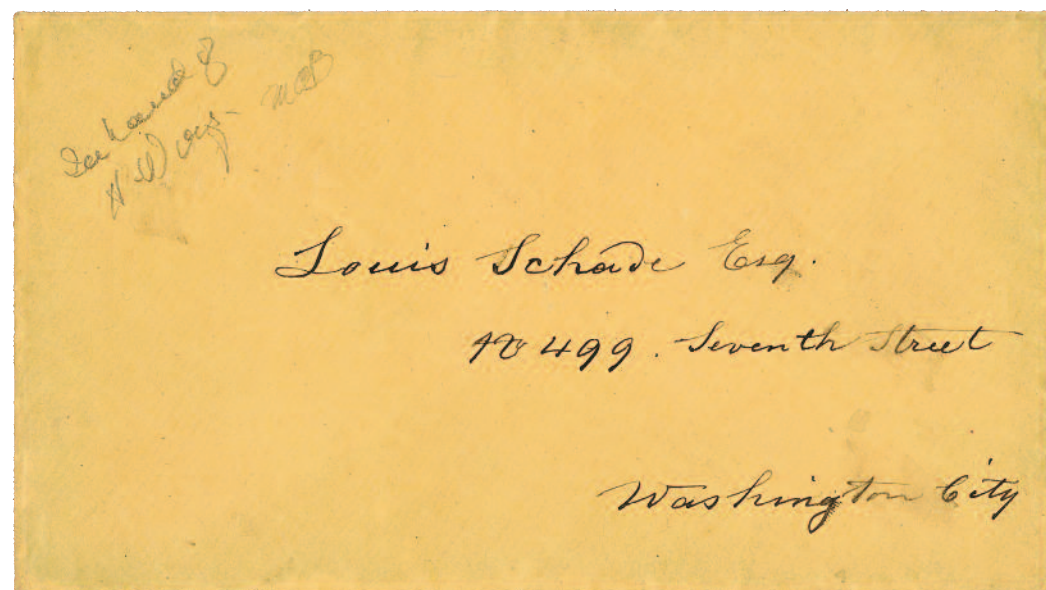 In hand of
H Wirz - MCB
Louis Schade Esq.
No 499. Seventh Street
Washington City